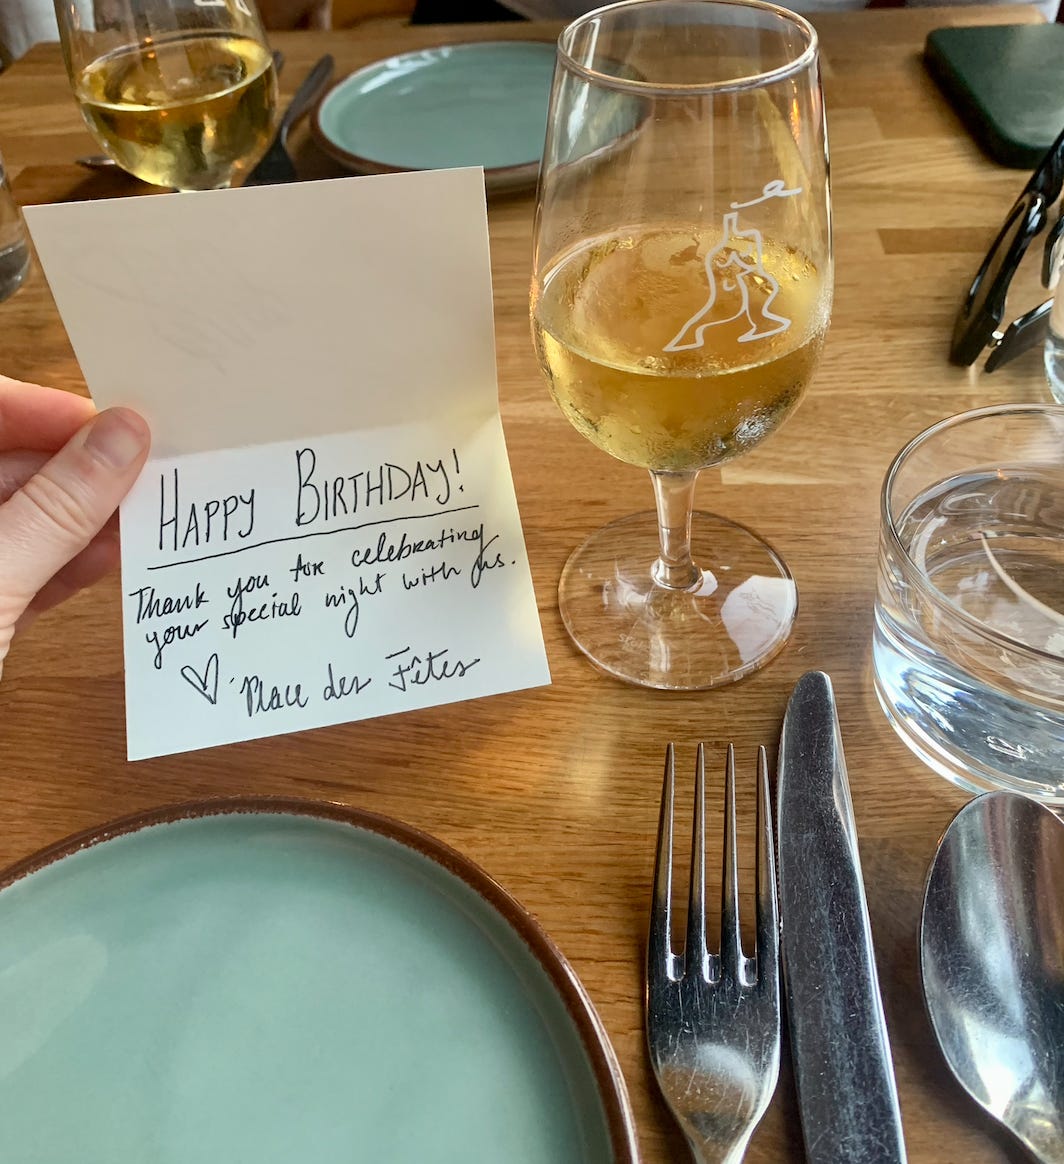 HAPPY BIRTHDAY!
Thank you for celebrating
your special night with us.
♡ Place des Fêtes